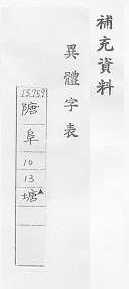 補充資料
異體字表
15759
隚
阜
10
13
塘▲